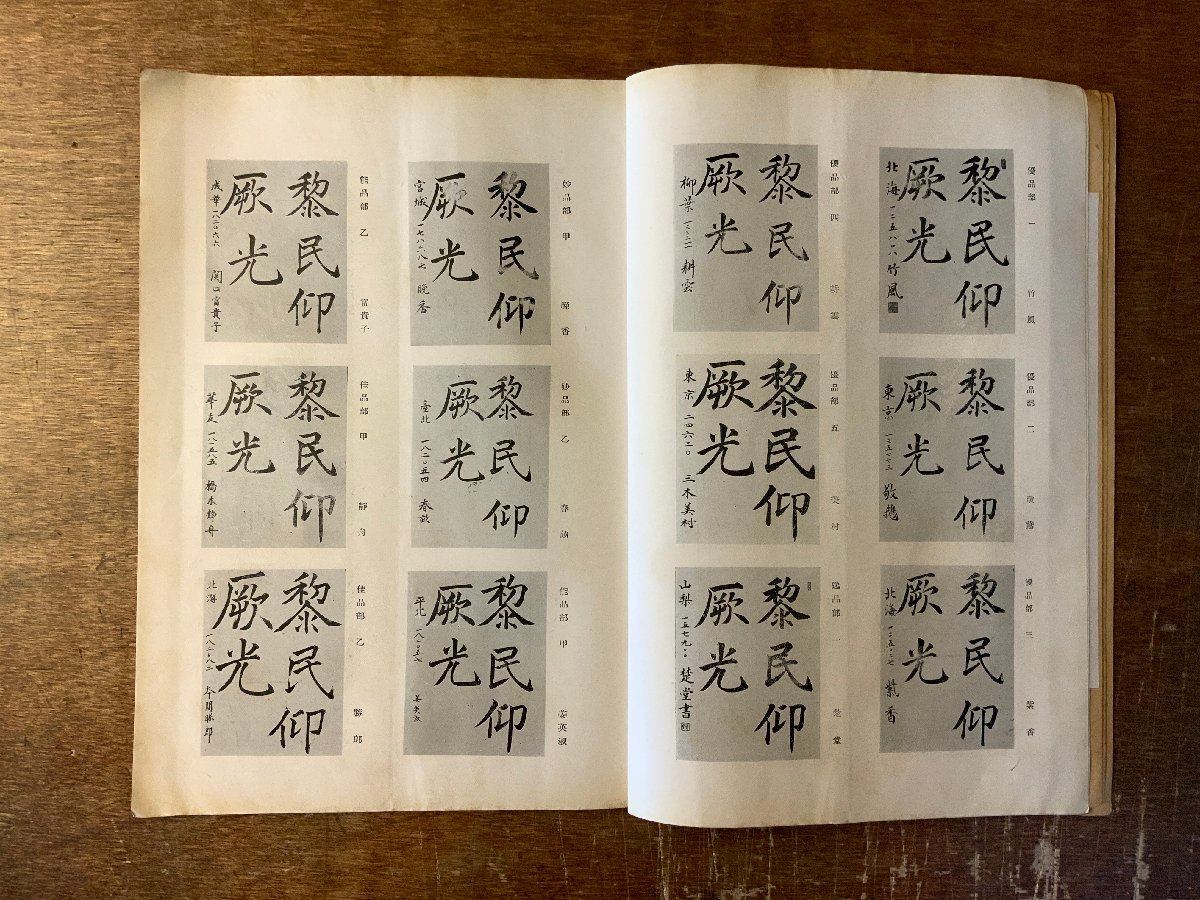 優品部一 竹風
黎民仰
厥光
北海 一二五八一八 竹風
優品部二
黎民仰
厥光
東京 一二五七七三
優品部三 紫香
黎民仰
厥光
北海 紫香
優品部四 耕雲
黎民仰
厥光
柳葉 耕雲
優品部五 美村
黎民仰
厥光
東京 二四六二〇 三木美村
逸品部 楚堂
黎民仰
厥光
山梨 一五七九〇〇 楚堂書
妙品部甲 晩香
黎民仰
厥光
宮城 一七八六八七 晩香
妙品部乙
黎民仰
厥光
臺北 一八二〇五四
能品部甲 姜英淑
黎民仰
厥光
平北 姜英淑
能品部乙 富貴子
黎民仰
厥光
咸華 一八二〇六六 関口富貴子
佳品部甲 靜舟
黎民仰
厥光
華友 一八一五八五 橋本靜舟
佳品部乙 勝郎
黎民仰
厥光
北海 本間勝郎